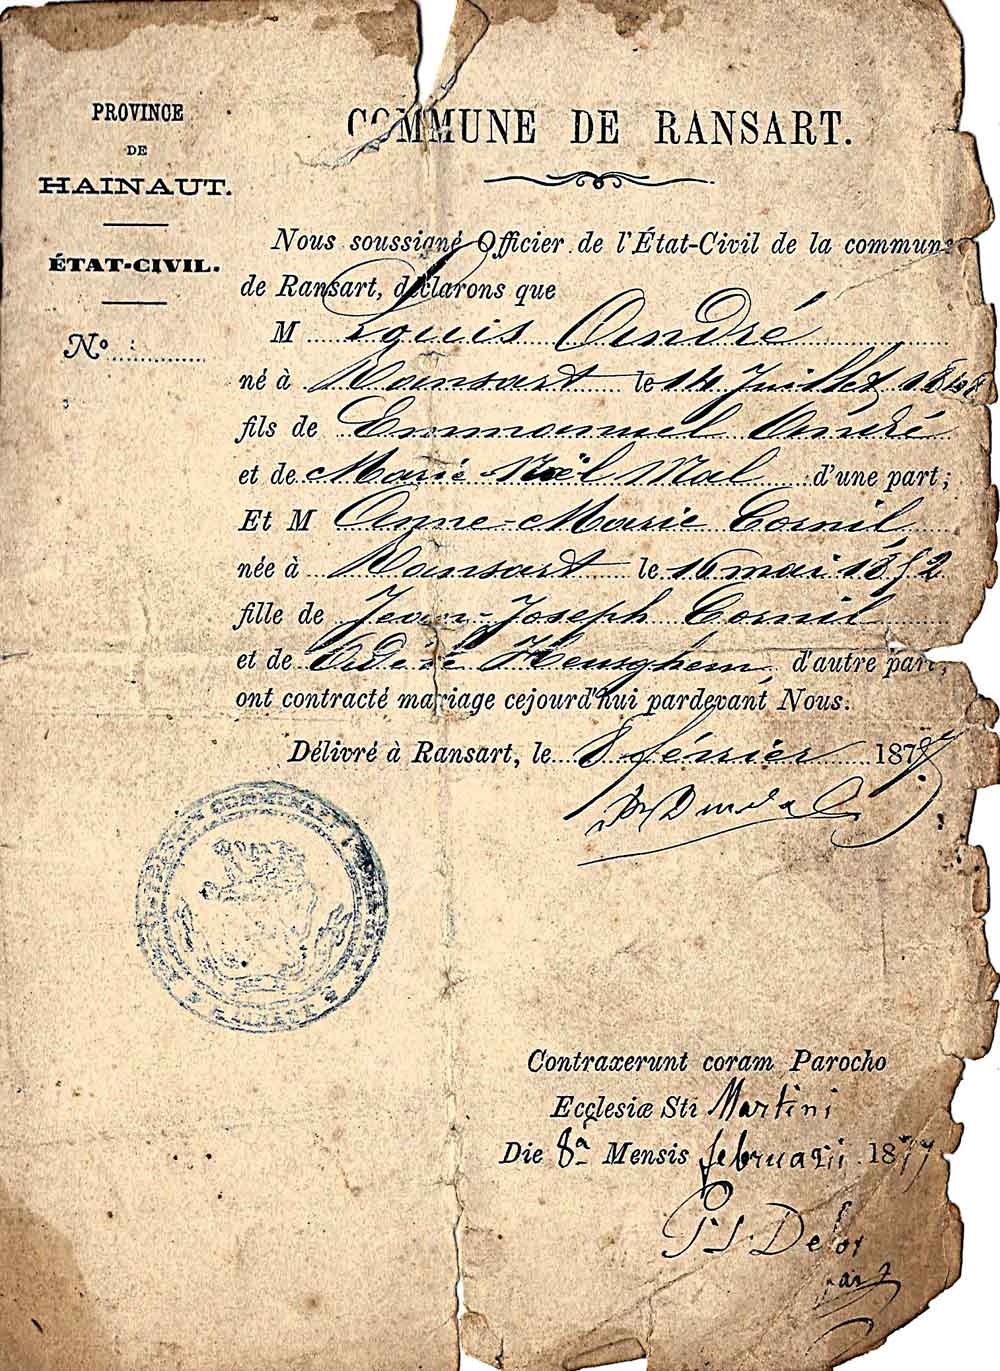 PROVINCE
DE
HAINAUT.
ÉTAT-CIVIL.
Nº
COMMUNE DE RANSART.
Nous soussigné Officier de l'État-Civil de la commune
de Ransart, déclarons que
M Louis André
né à Ransart le 14 Juillet 1848
fils de Emmanuel André
et de Marie-Noël Mal d'une part;
Et M Anne-Marie Cornil
née à Ransart le 16 mai 1852
fille de Jean-Joseph Cornil
et de Heuseghem d'autre part,
ont contracté mariage cejourd'hui pardevant Nous.
Délivré à Ransart, le 8 février 1877
Contraxerunt coram Parocho
Ecclesiæ Sti Martini
Die 8a Mensis februarii 1877